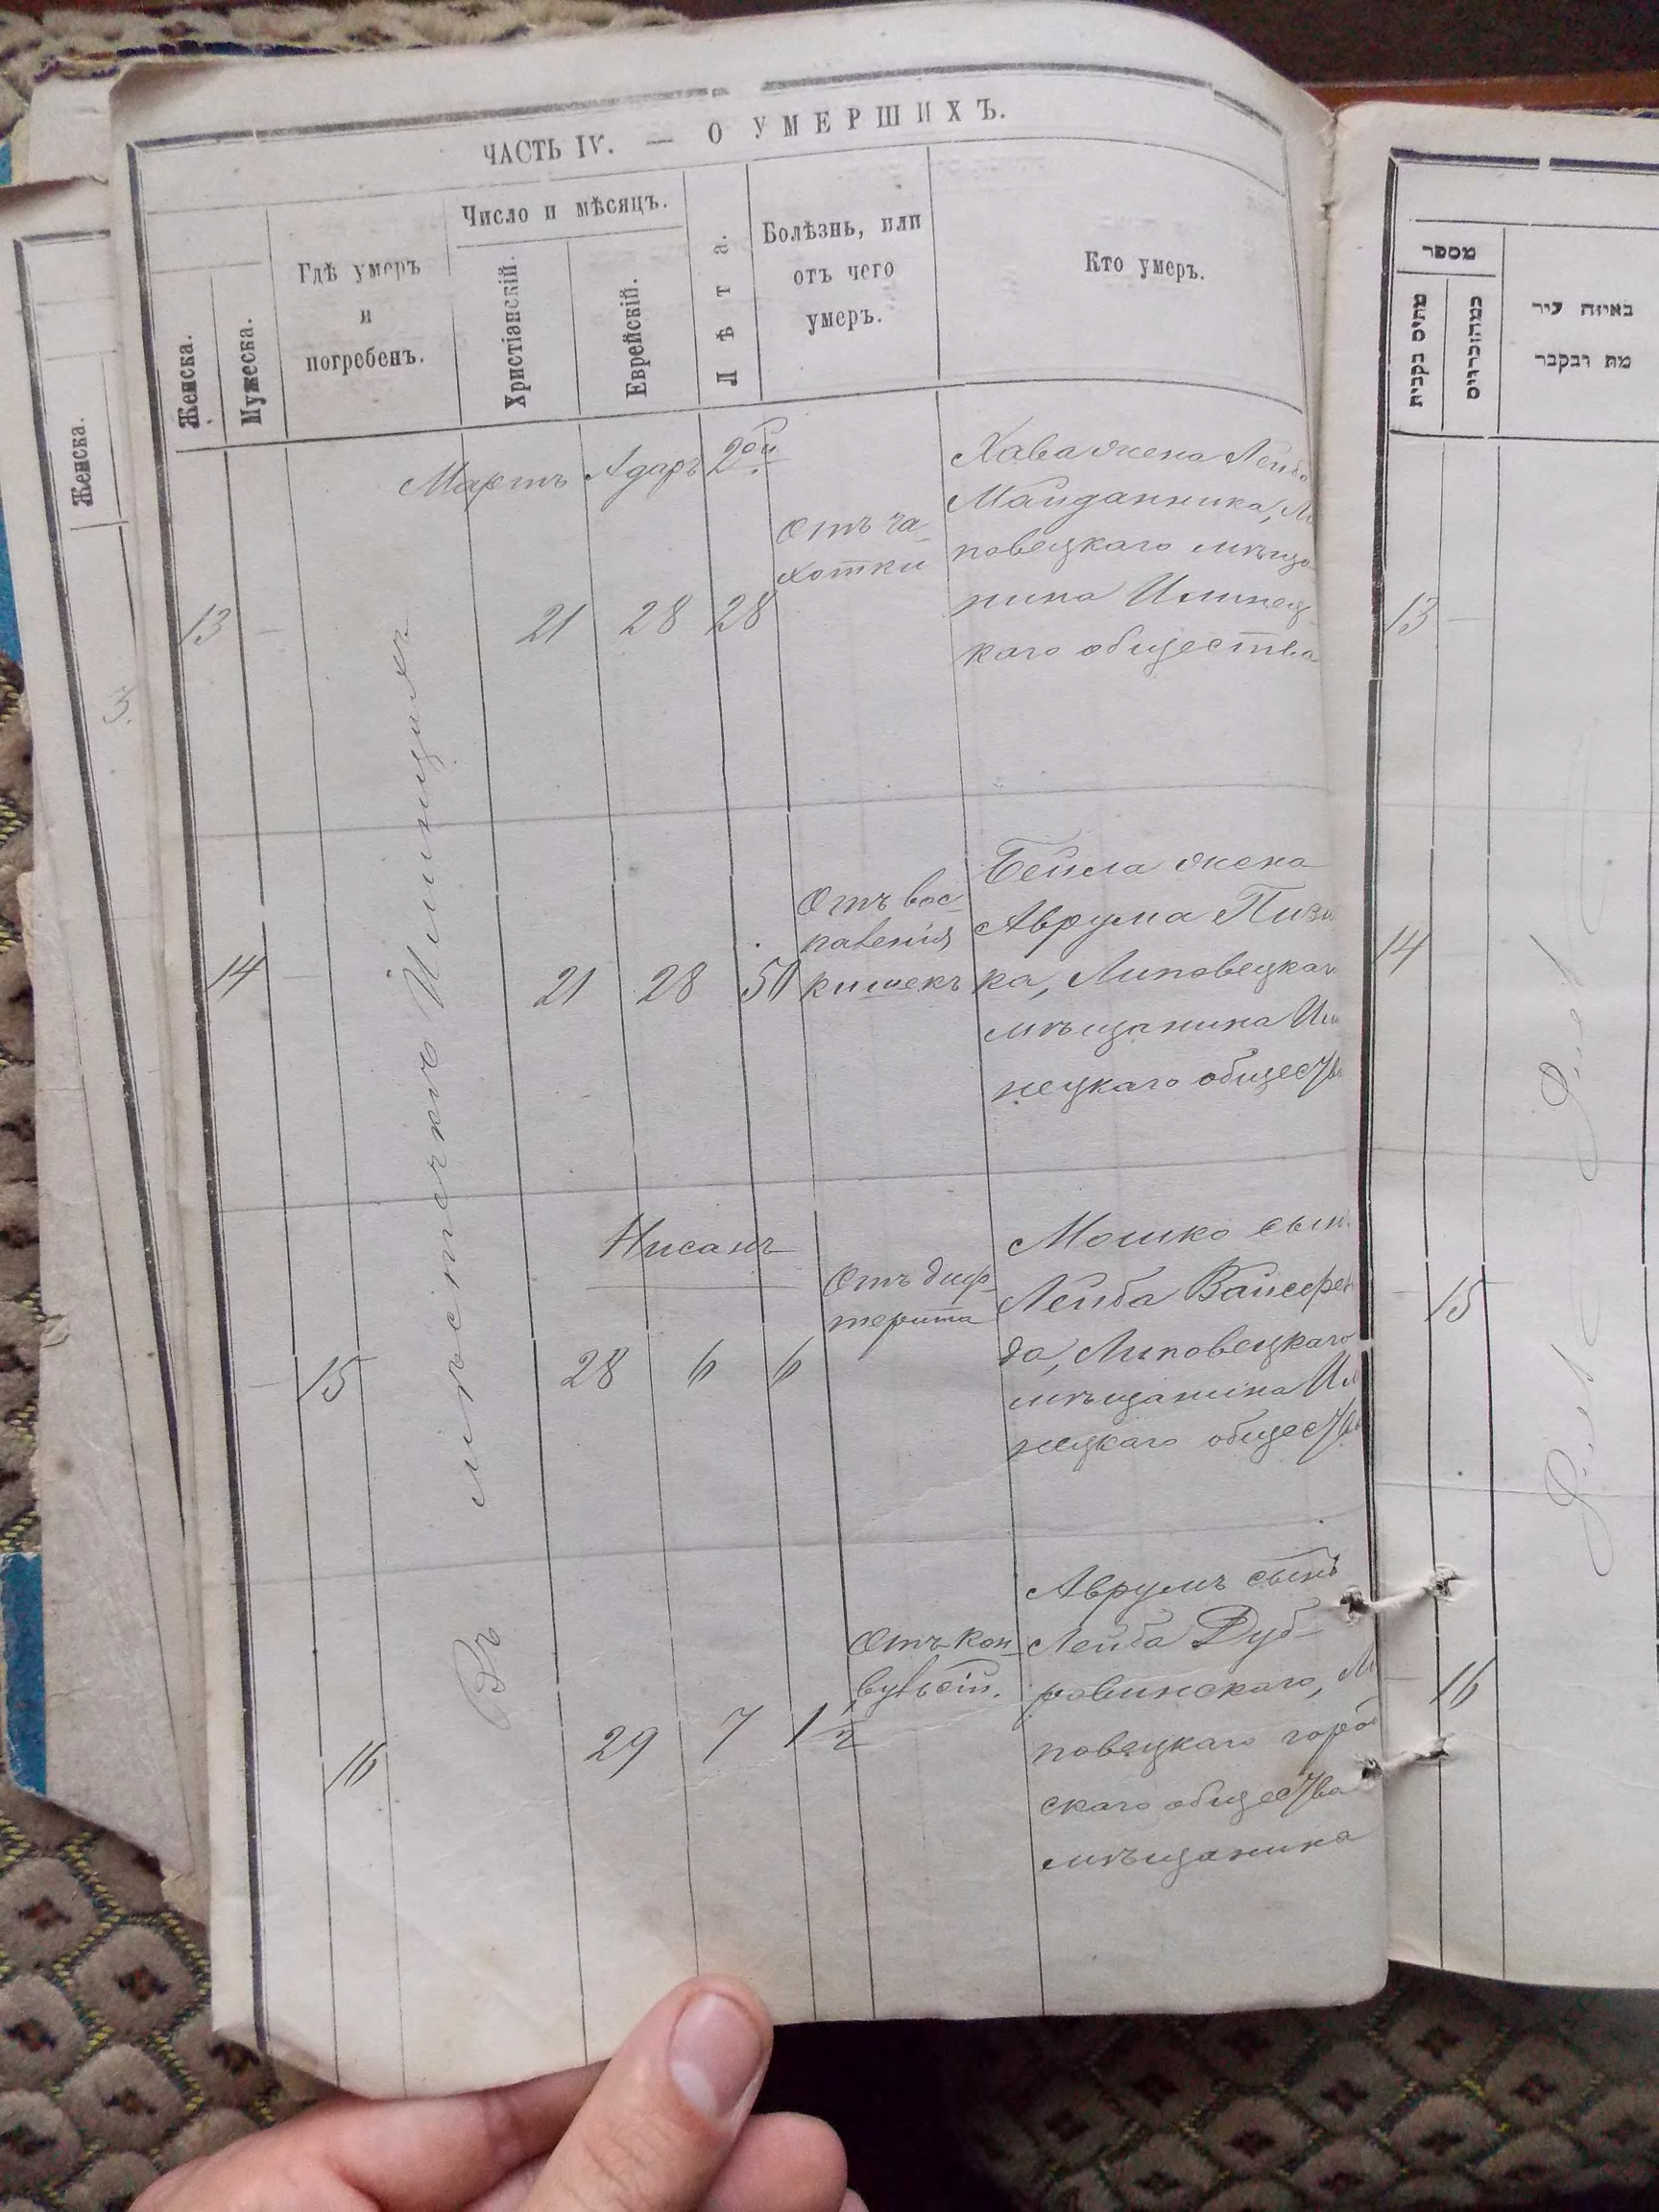 ЧАСТЬ IV. — О УМЕРШИХЪ.
Женска.
Мужеска.
Гдѣ умеръ
и
погребенъ.
Число и мѣсяцъ.
Христіанскій.
Еврейскій.
Лѣта.
Болѣзнь, или
отъ чего
умеръ.
Кто умеръ.
Въ мѣстечкѣ Илинцахъ
Мартъ Адаръ 2ой
13 — 21 28 28
Отъ ча-
хотки
Хава жена Лейб
Майданника, Ли
повецкаго мѣща
нина Илинец-
каго общества
14 — 21 28 50
Отъ вос-
паленія
кишекъ
Бейла жена
Аврума Пизи
ка, Липовецкаго
мѣщанина Или
нецкаго общества
Нисанъ
— 15 28 6 6
Отъ диф-
терита
Мошко сынъ
Лейба Вайсфель
да, Липовецкаго
мѣщанина Или
нецкаго общества
16 29 7 1½
Отъ кон-
вульсій.
Аврумъ сынъ
Лейба Дуб-
ровинскаго, Ли
повецкаго город
скаго общества
мѣщанина
Женска.
3.
מספר
באיזה עיר
מת ונקבר
13 —
14
— 15
— 16